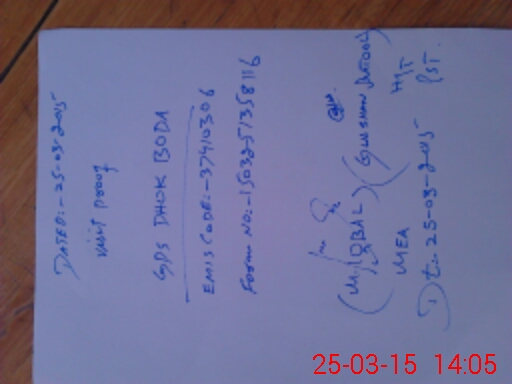 DATED:-25-03-2015
visit proof
GPS DHOK BODA
EMIS CODE:-37410306
Form NO:-1503251358116
(M. IQBAL) (GULSHAN
MEA HIT PST.
Dt:-25-03-2015
25-03-15 14:05